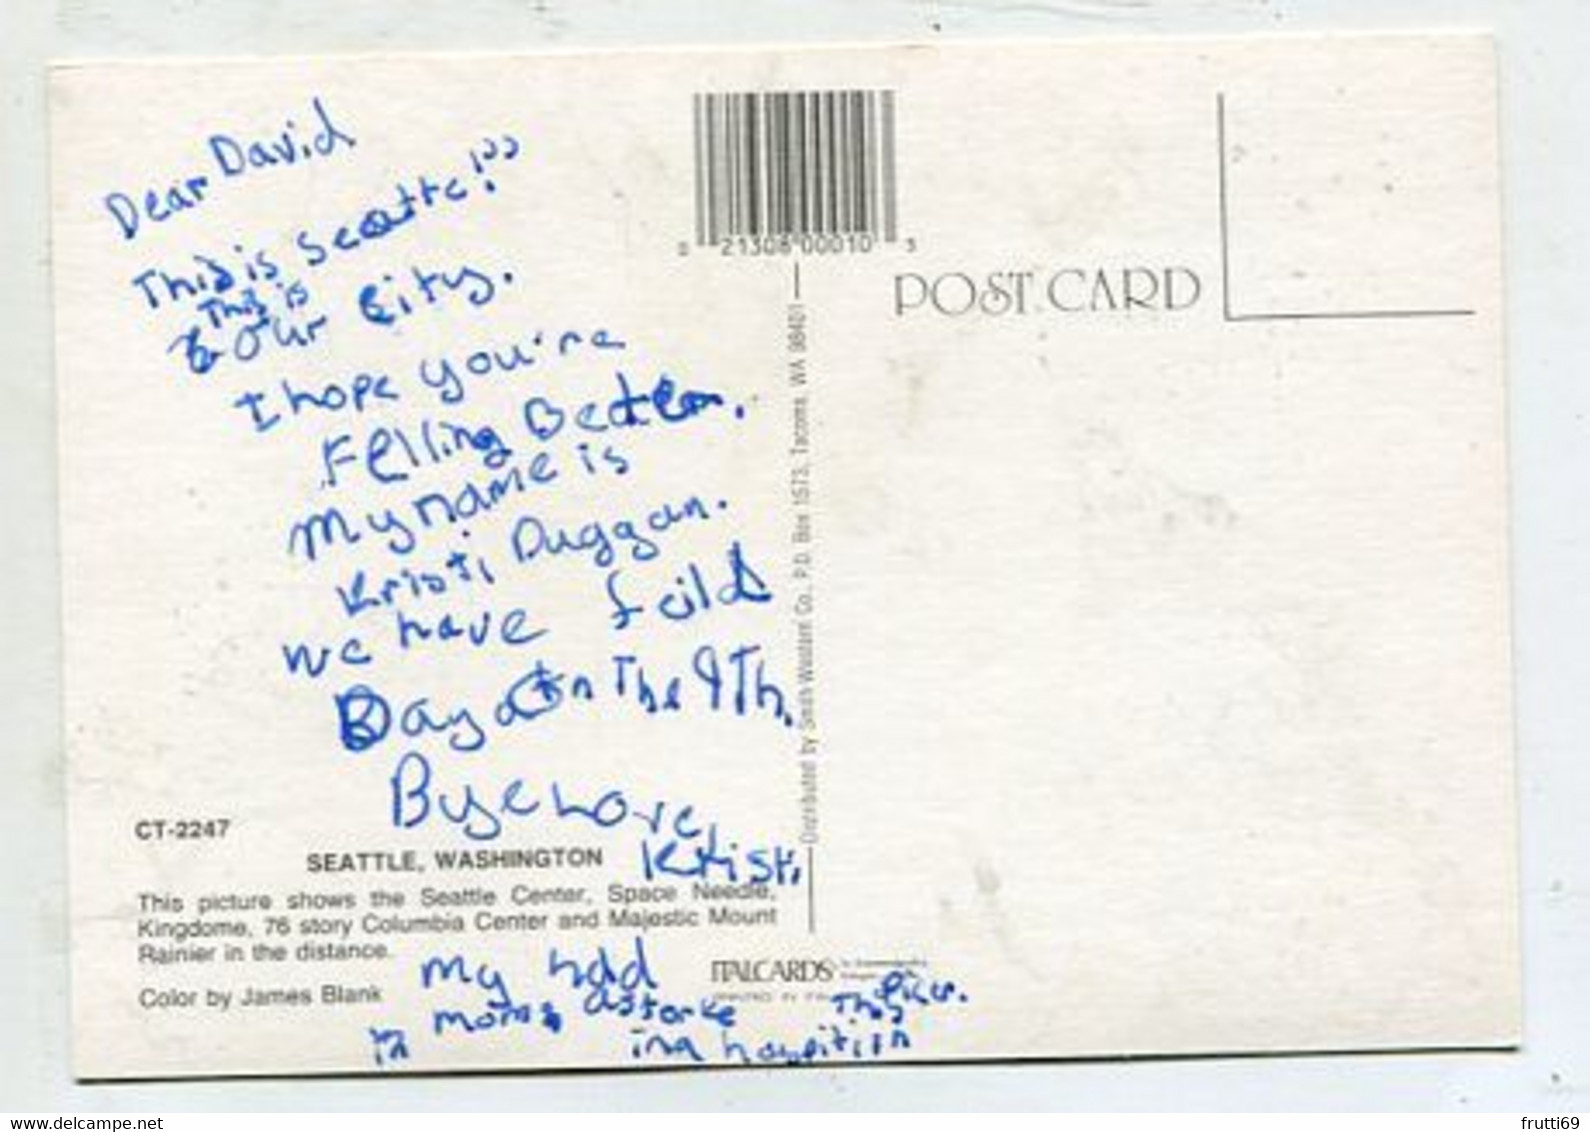 Dear David
This is Seatte!??
This is
our city.
I hope you're
Felling Better.
My name is
Kristi Duggan.
we have feild
Day on The 9Th.
Bye Love,
Kristi
My had
mom astorke This
in a
0 21308 00010 3
POST CARD
Distributed by Smith-Western Co., P.O. Box 1573, Tacoma, WA 98401
CT-2247
SEATTLE, WASHINGTON
This picture shows the Seattle Center, Space Needle,
Kingdome, 76 story Columbia Center and Majestic Mount
Rainier in the distance.
Color by James Blank
ITALCARDS
www.delcampe.net
frutti69